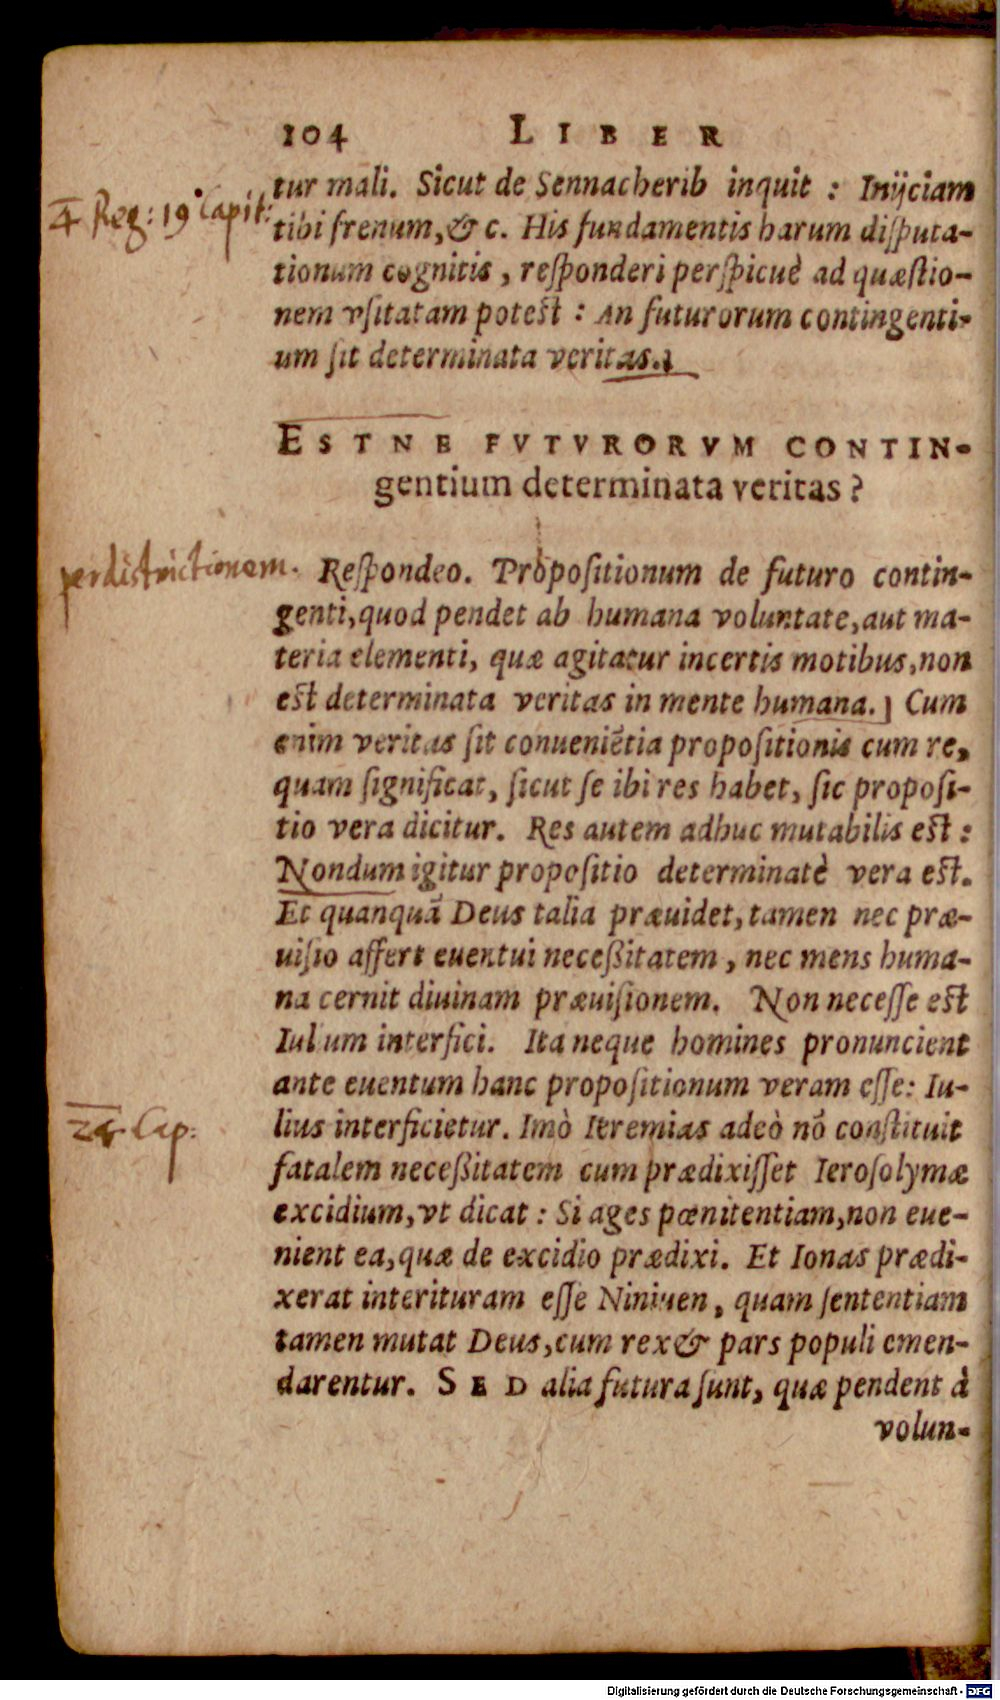 104 LIBER
4 Reg: 19 Capit:
tur mali. Sicut de Sennacherib inquit : Inijciam
tibi frenum, & c. His fundamentis harum disputa-
tionum cognitis, responderi perspicuè ad quæstio-
nem vsitatam potest : An futurorum contingenti-
um sit determinata veritas.
ESTNE FVTVRORVM CONTIN-
gentium determinata veritas?
per districtionem.
Respondeo. Propositionum de futuro contin-
genti, quod pendet ab humana voluntate, aut ma-
teria elementi, quæ agitatur incertis motibus, non
est determinata veritas in mente humana. Cum
enim veritas sit conueniẽtia propositionis cum re,
quam significat, sicut se ibi res habet, sic proposi-
tio vera dicitur. Res autem adhuc mutabilis est :
Nondum igitur propositio determinatè vera est.
Et quanquã Deus talia præuidet, tamen nec præ-
uisio affert euentui necessitatem, nec mens huma-
na cernit diuinam præuisionem. Non necesse est
Iulium interfici. Ita neque homines pronuncient
ante euentum hanc propositionum veram esse: Iu-
lius interficietur. Imò Ieremias adeò nõ constituit
24 Cap:
fatalem necessitatem cum prædixisset Ierosolymæ
excidium, vt dicat : Si ages pœnitentiam, non eue-
nient ea, quæ de excidio prædixi. Et Ionas prædi-
xerat interituram esse Niniuen, quam sententiam
tamen mutat Deus, cum rex & pars populi emen-
darentur. SED alia futura sunt, quæ pendent à
volun-
Digitalisierung gefördert durch die Deutsche Forschungsgemeinschaft - DFG